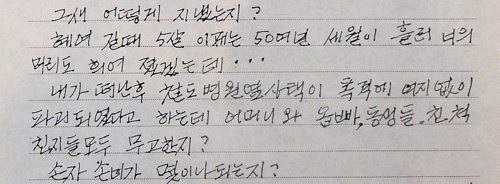 그새 어떻게 지냈는지?
헤여 질때 5살 이제는 50여년 세월이 흘러 너의
머리도 희여 졌겠는데 ···
내가 떠난후 철도병원옆사택이 폭격에 여지없이
파괴되였다고 하는데 어머니와 옵빠, 동생들, 친척
친지들모두 무고한지?
손자 손녀가 몇이나되는지?